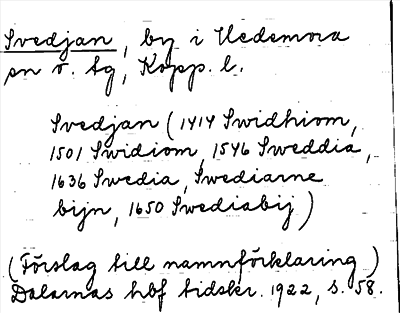 Svedjan, by i Hedemora
sn o. tg, Kopp. l.
Svedjan (1414 Swidhiom,
1501 Swidiom, 1546 Sweddia,
1636 Swedia, Swediarne
bijn, 1650 Swediabij)
(Förslag till namnförklaring)
Dalarnas hbf tidskr. 1922, s. 58.